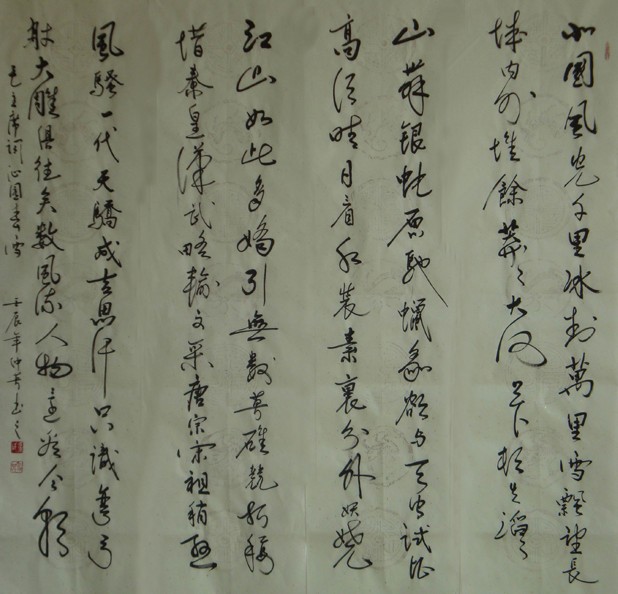 北國風光千里冰封萬里雪飄望長
城內外惟餘莽々大河上下頓失滔々
山舞銀蛇原馳蠟象欲與天公試比
高須晴日看紅裝素裹分外妖嬈
江山如此多嬌引無數英雄競折腰
惜秦皇漢武略輸文采唐宗宋祖稍遜
風騷一代天驕成吉思汗只識彎弓
射大雕俱往矣數風流人物還看今朝
毛主席詞沁園春雪 壬辰年仲